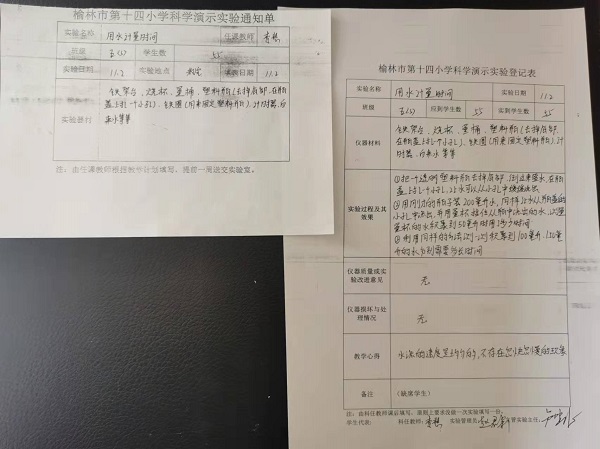 榆林市第十四小学科学演示实验通知单
实验名称 用水计量时间 任课教师
班级 五(1) 学生数 55
实验日期 11.2 实验地点 教室 填表日期 11.2
铁架台、烧杯、量桶、塑料瓶(去掉底部、在瓶
盖上扎一个小孔)、铁圈(用来固定塑料瓶)、计时器、
水等等
实验器材
注：由任课教师根据教学计划填写，提前一周送交实验室。
榆林市第十四小学科学演示实验登记表
实验名称 用水计量时间 实验日期 11.2
班级 五(1) 应到学生数 55 实到学生数 55
仪器材料
铁架台、烧杯、量桶、塑料瓶(去掉底部
在瓶盖上扎一个小孔)、铁圈(用来固定塑料瓶)、计
时器、水等等
实验过程及其
效果
①把一个透明塑料瓶去掉底部，倒过来，在瓶
盖上扎一个小孔，让水可以从小孔中缓缓流出
毫升水，同样让水从瓶盖的
小孔中流出，并用量杯接住从瓶中流出的水
量杯的水 到50毫升时用了多少时间
100毫升、150毫
升的水分别需要多长时间
仪器质量或实
验改进意见
无
仪器损坏与处
理情况
无
教学心得
水流的速度是均匀的，不存在忽快忽慢的现象
备注 (缺席学生)
注：由科任教师课后填写，原则上要求没做一次实验填写一份。
学生代表： 科任教师： 实验管理员： 主管实验主任：